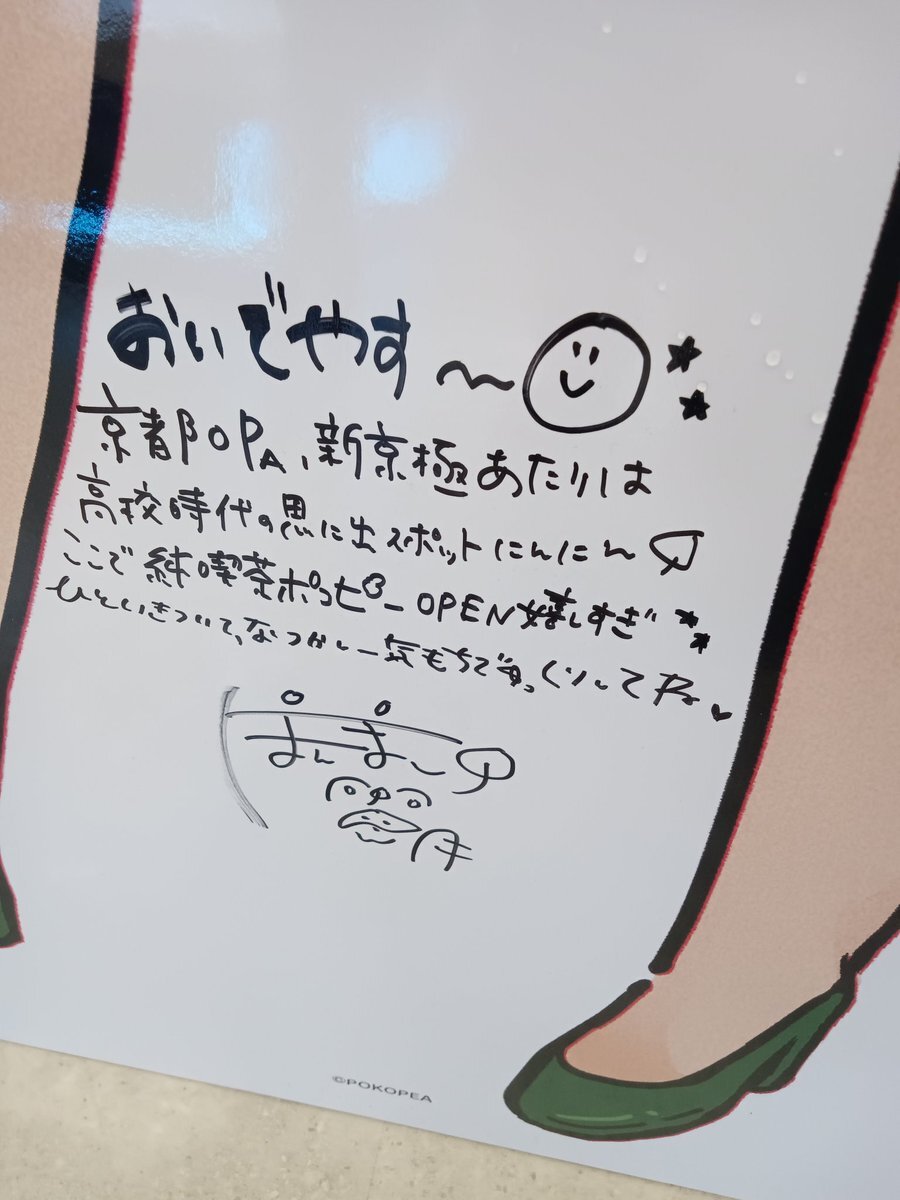 おいでやす〜
京都OPA、新京極あたりは
高校時代の思い出スポットにんにん
ここで純喫茶ポッピーOPEN嬉しすぎ
ひといきついて、なつかしー気もちでゆっくりしてね♥
©POKOPEA